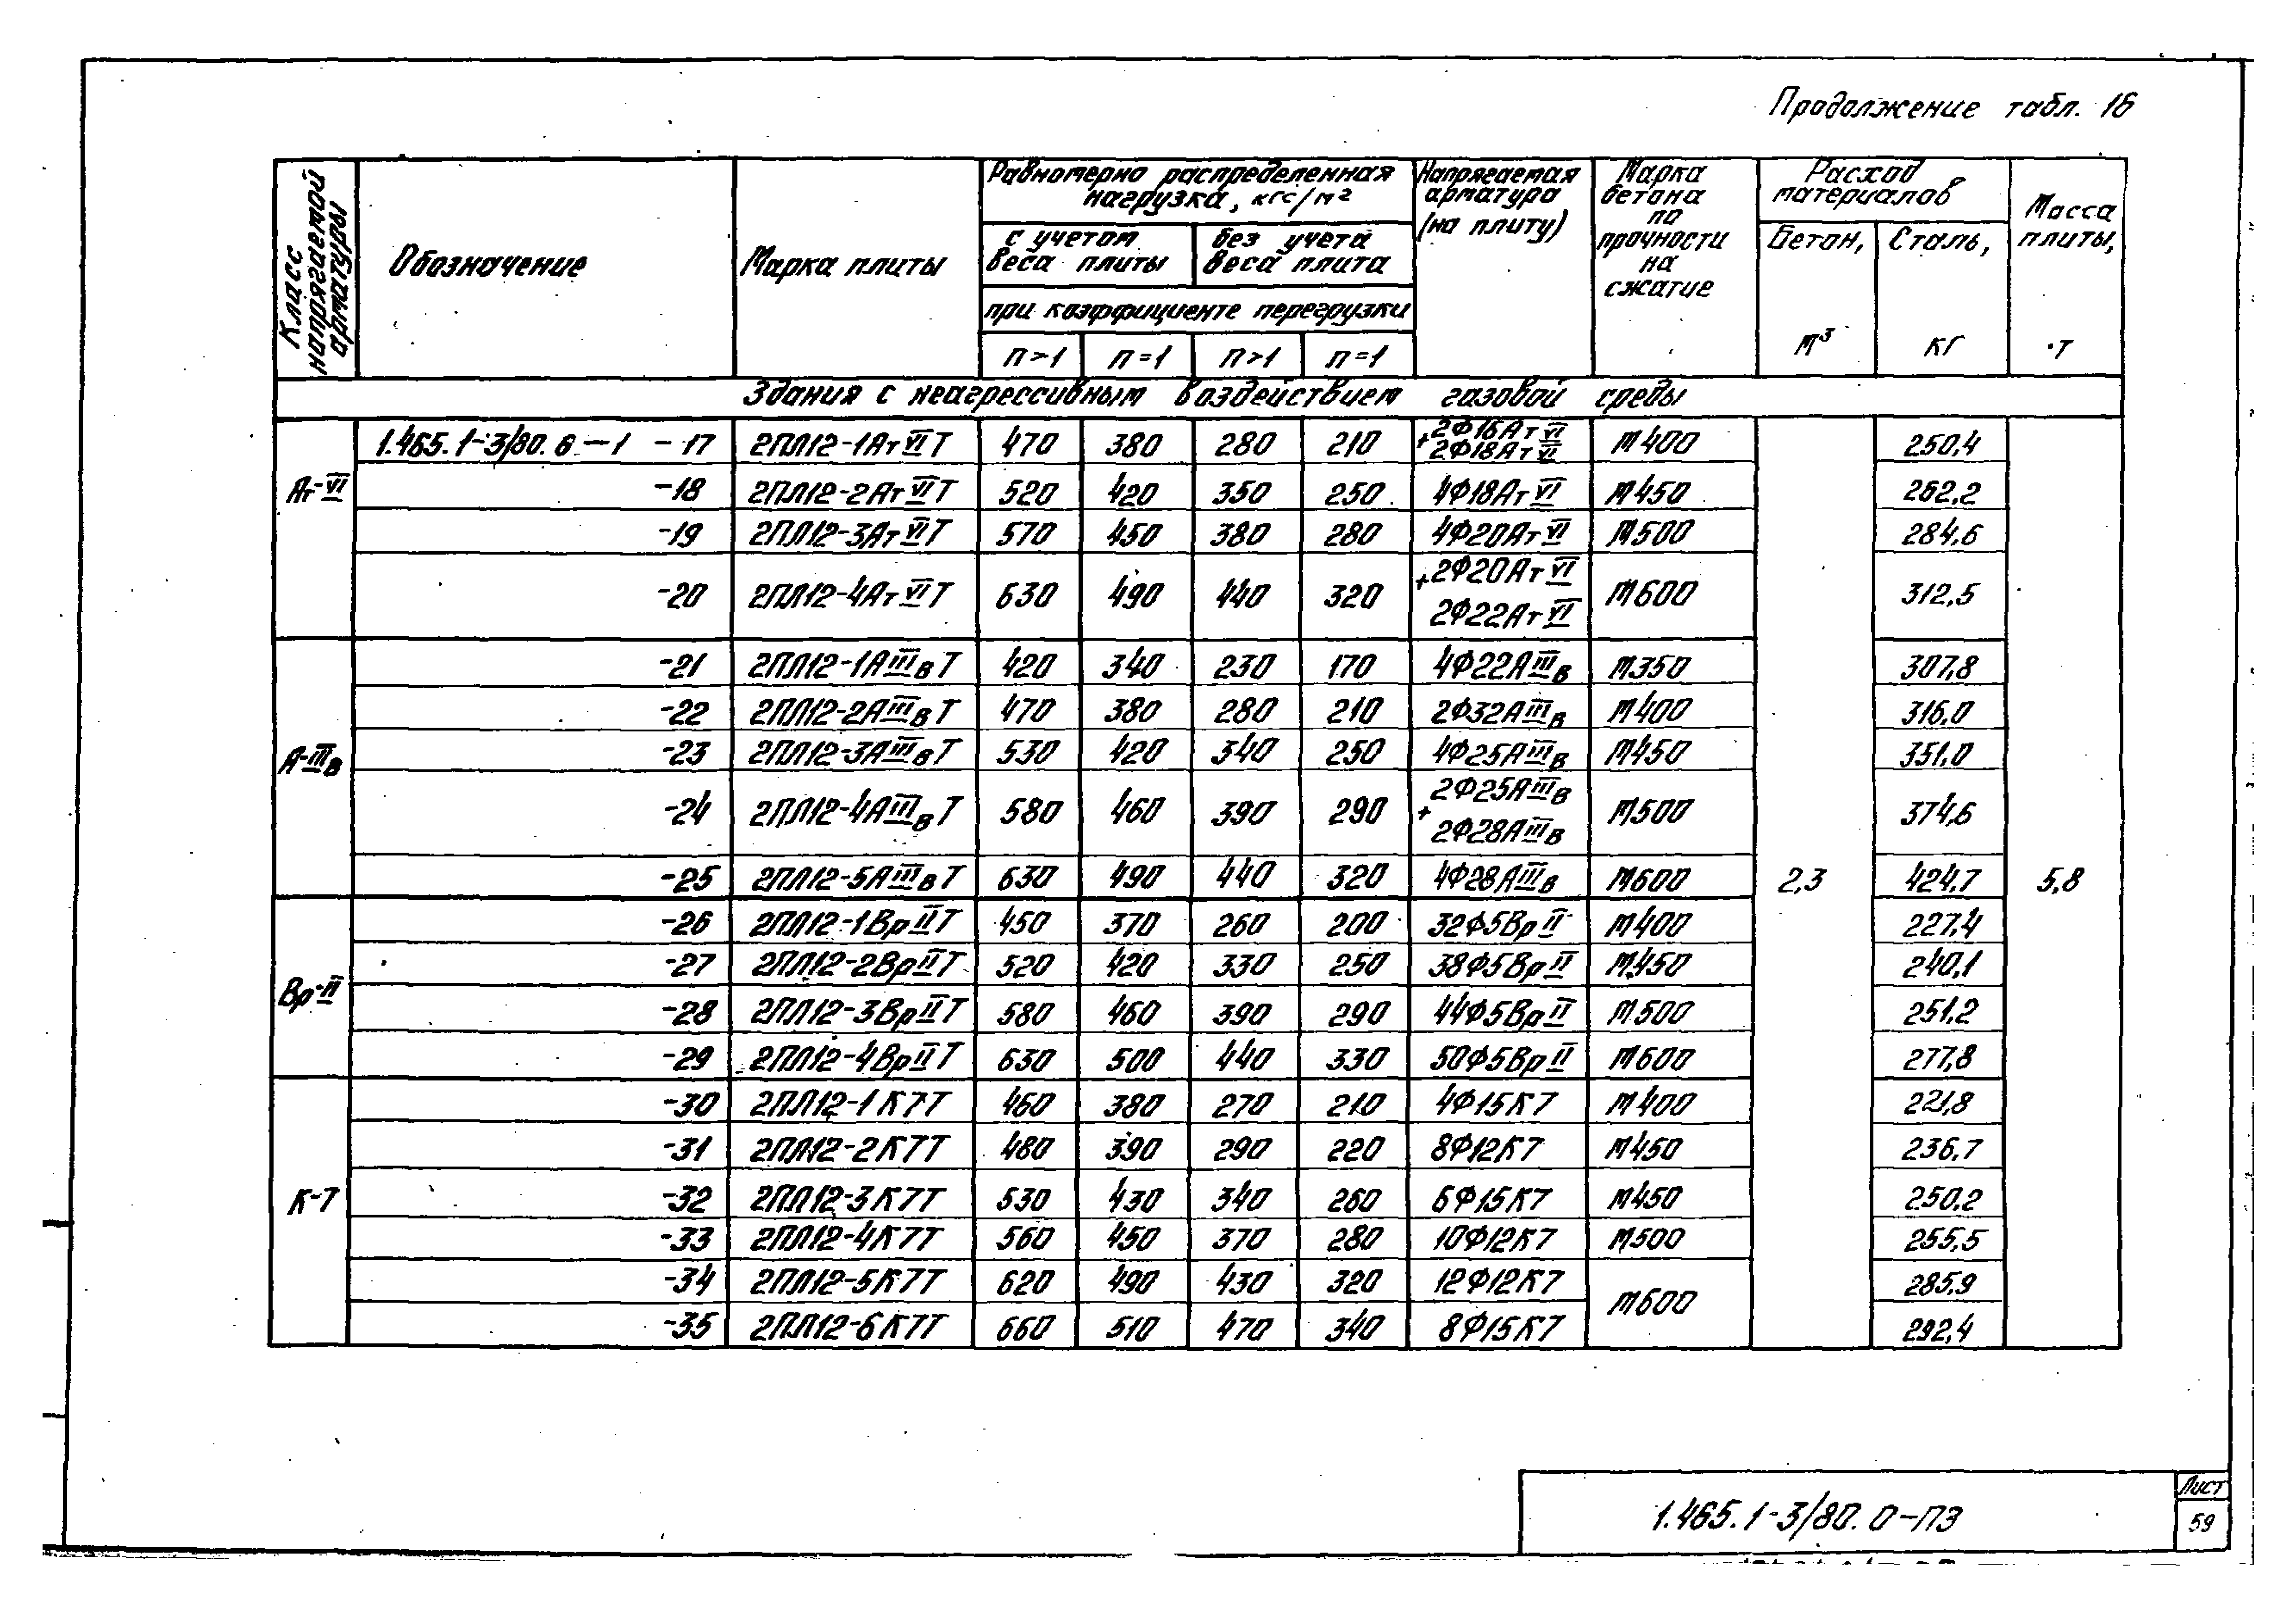 Продолжение табл. 16
Класс напрягаемой арматуры
Обозначение
Марка плиты
Равномерно распределенная нагрузка, кгс/м²
с учетом веса плиты
без учета веса плита
при коэффициенте перегрузки
п>1 п=1 п>1 п=1
Напрягаемая арматура (на плиту)
Марка бетона по прочности на сжатие
Расход материалов
Бетон, м³
Сталь, кг
Масса плиты, т
Здания с неагрессивным воздействием газовой среды
Ат-VI
1.465.1-3/80.6-1 -17 2ПЛ12-1АтVIТ 470 380 280 210 2Ф16АтVI + 2Ф18АтVI М400 250,4
-18 2ПЛ12-2АтVIТ 520 420 350 250 4Ф18АтVI М450 262,2
-19 2ПЛ12-3АтVIТ 570 450 380 280 4Ф20АтVI М500 284,6
-20 2ПЛ12-4АтVIТ 630 490 440 320 2Ф20АтVI + 2Ф22АтVI М600 312,5
А-IIIв
-21 2ПЛ12-1АIIIвТ 420 340 230 170 4Ф22АIIIв М350 307,8
-22 2ПЛ12-2АIIIвТ 470 380 280 210 2Ф32АIIIв М400 316,0
-23 2ПЛ12-3АIIIвТ 530 420 340 250 4Ф25АIIIв М450 351,0
-24 2ПЛ12-4АIIIвТ 580 460 390 290 2Ф25АIIIв + 2Ф28АIIIв М500 374,6
-25 2ПЛ12-5АIIIвТ 630 490 440 320 4Ф28АIIIв М600 2,3 424,7 5,8
Вр-II
-26 2ПЛ12-1ВрIIТ 450 370 260 200 32Ф5ВрII М400 227,4
-27 2ПЛ12-2ВрIIТ 520 420 330 250 38Ф5ВрII М450 240,1
-28 2ПЛ12-3ВрIIТ 580 460 390 290 44Ф5ВрII М500 251,2
-29 2ПЛ12-4ВрIIТ 630 500 440 330 50Ф5ВрII М600 277,8
К-7
-30 2ПЛ12-1К7Т 460 380 270 210 4Ф15К7 М400 221,8
-31 2ПЛ12-2К7Т 480 390 290 220 8Ф12К7 М450 236,7
-32 2ПЛ12-3К7Т 530 430 340 260 6Ф15К7 М450 250,2
-33 2ПЛ12-4К7Т 560 450 370 280 10Ф12К7 М500 255,5
-34 2ПЛ12-5К7Т 620 490 430 320 12Ф12К7 М600 285,9
-35 2ПЛ12-6К7Т 660 510 470 340 8Ф15К7 292,4
1.465.1-3/80.0-ПЗ
Лист
59